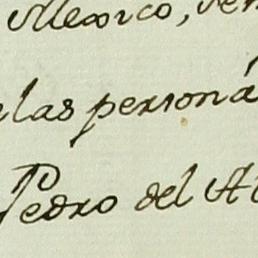 Mexico,
las personá
Pedro del